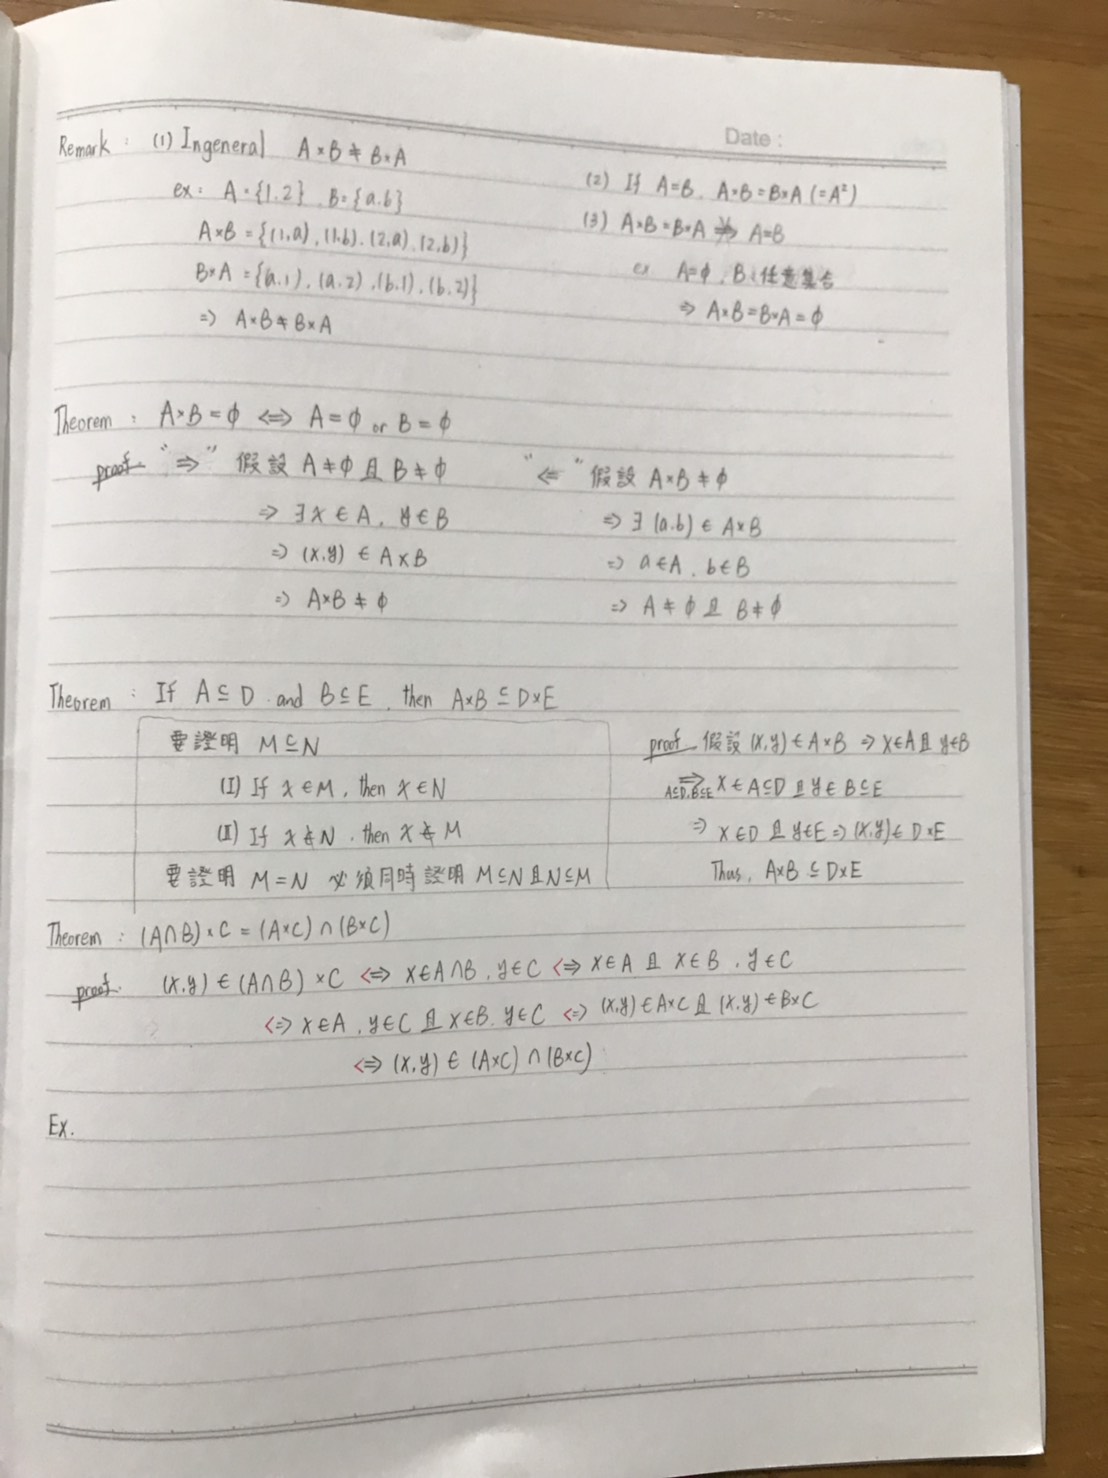 Date :
Remark : (1) Ingeneral A×B ≠ B×A
ex: A={1.2} B={a.b}
A×B = {(1,a),(1,b).(2,a).(2,b)}
B×A = {(a.1),(a.2),(b.1),(b.2)}
=> A×B≠B×A
(2) If A=B. A×B=B×A (=A²)
(3) A×B=B×A ⇏ A=B
ex A=ϕ, B:任意集合
⇒ A×B=B×A=ϕ
Theorem : A×B=ϕ ⇔ A=ϕ or B=ϕ
proof "⇒" 假設 A≠ϕ 且 B≠ϕ
⇒ ∃x∈A, y∈B
⇒ (x,y) ∈ A×B
⇒ A×B≠ϕ
"⇐" 假設 A×B≠ϕ
⇒ ∃ (a.b) ∈ A×B
⇒ a∈A, b∈B
⇒ A≠ϕ 且 B≠ϕ
Theorem : If A⊆D and B⊆E, then A×B⊆D×E
要證明 M⊆N
(I) If x∈M, then x∈N
(II) If x∉N, then x∉M
要證明 M=N 必須同時證明 M⊆N且N⊆M
proof 假設 (x,y)∈A×B ⇒ x∈A且y∈B
⇒ A⊆D,B⊆E x∈A⊆D 且 y∈B⊆E
⇒ x∈D 且 y∈E ⇒ (x,y)∈D×E
Thus, A×B⊆D×E
Theorem : (A∩B)×C = (A×C)∩(B×C)
proof. (x,y)∈(A∩B)×C ⇔ x∈A∩B, y∈C ⇔ x∈A 且 x∈B, y∈C
⇔ x∈A, y∈C 且 x∈B, y∈C ⇔ (x,y)∈A×C 且 (x,y)∈B×C
⇔ (x,y)∈(A×C)∩(B×C)
Ex.